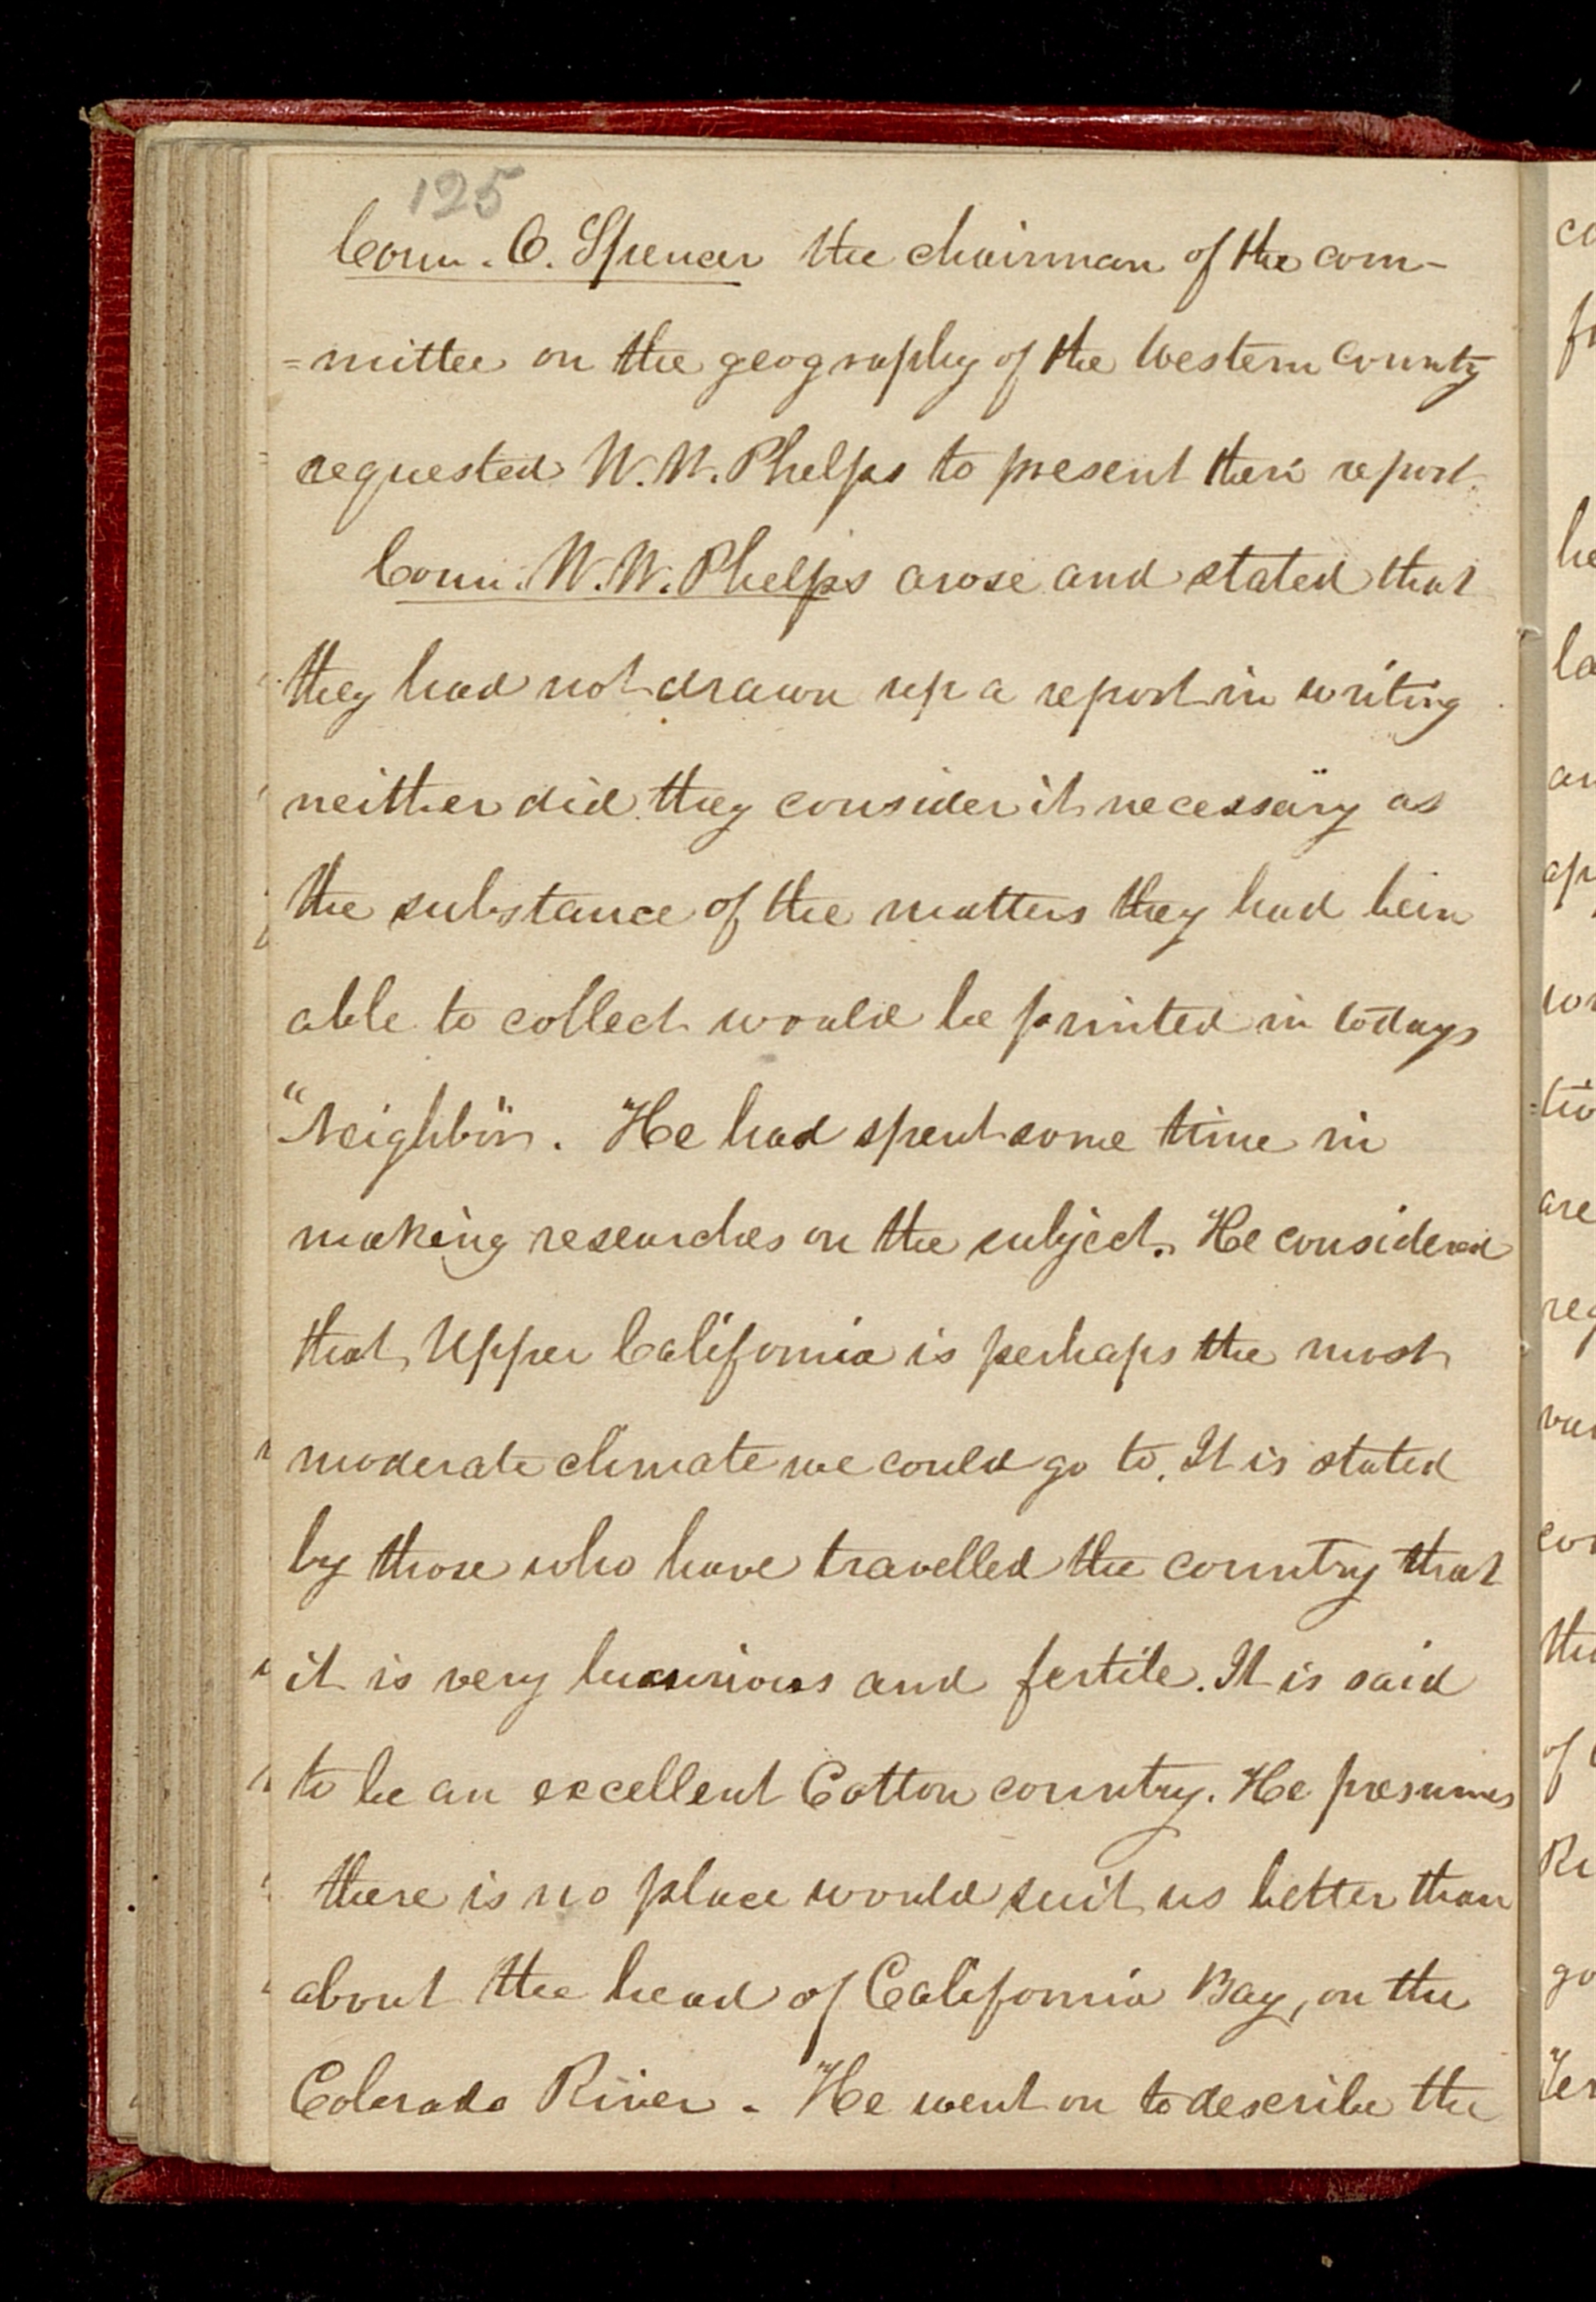 125
Coun. O. Spencer the chairman of the com-
=mittee on the geography of the Western county
requested W. W. Phelps to present their report.
Coun. W. W. Phelps arose and stated that
they had not drawn up a report in writing
neither did they consider it necessary as
the substance of the matters they had been
able to collect would be printed in todays
"Neighbor". He had spent some time in
making researches on the subject. He considered
that Upper California is perhaps the most
moderate climate we could go to. It is stated
by those who have travelled the country that
it is very luxurious and fertile. It is said
to be an excellent Cotton country. He presumes
there is no place would suit us better than
about the head of California Bay, on the
Colorado River. He went on to describe the